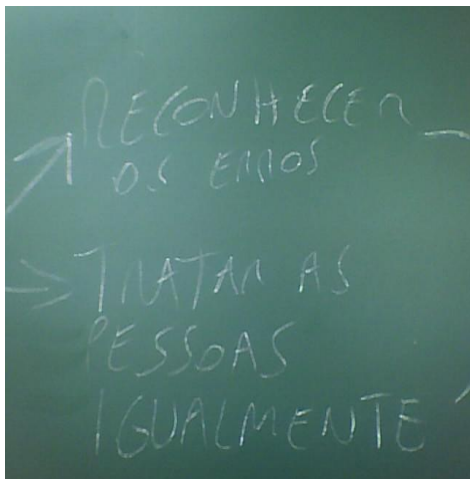 RECONHECER
OS ERROS
TRATAR AS
PESSOAS
IGUALMENTE